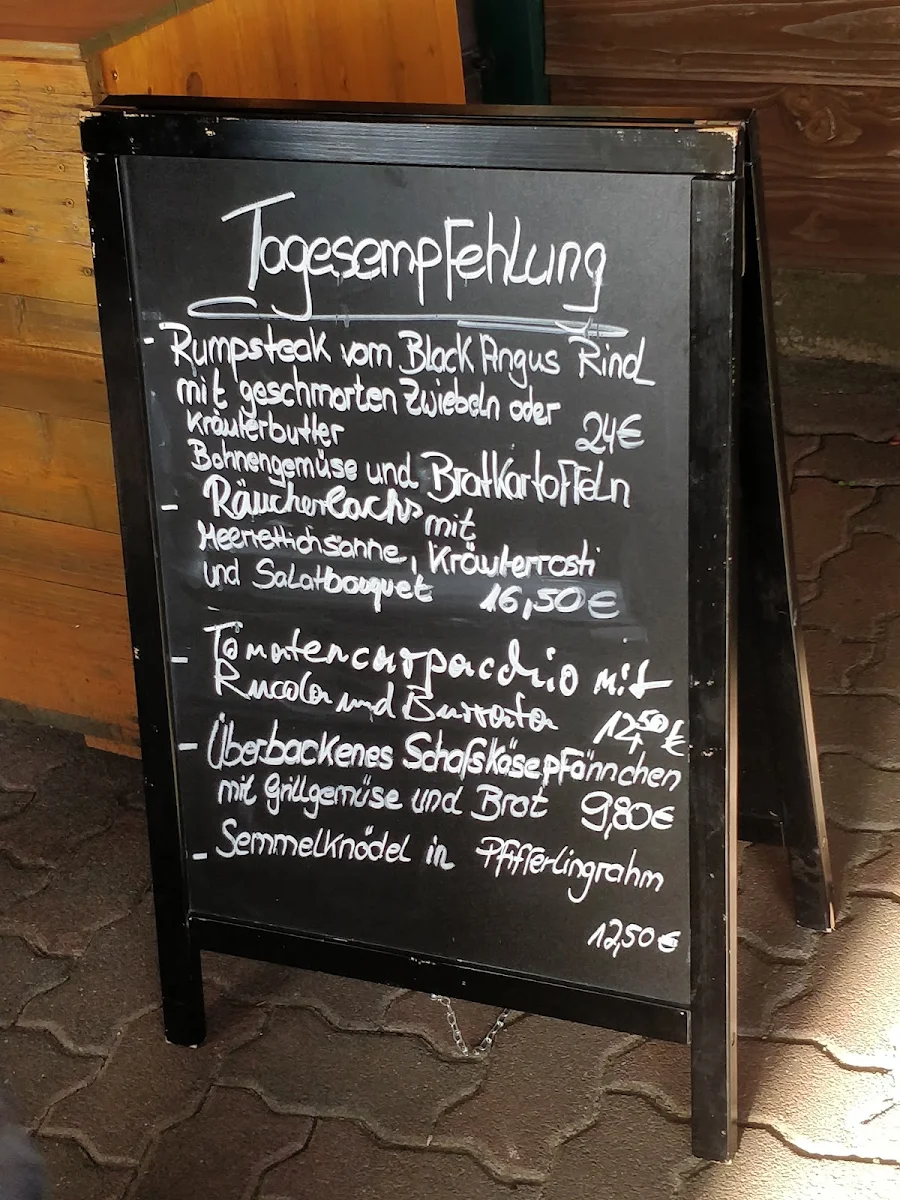 Tagesempfehlung
- Rumpsteak vom Black Angus Rind
mit geschmorten Zwiebeln oder
Kräuterbutter 24€
Bohnengemüse und Bratkartoffeln
- Räucherlachs mit
Meerrettichsahne, Kräuterrösti
und Salatbouquet 16,50€
- Tomatencarpacchio mit
Rucola und Burrata 12,50€
- Überbackenes Schafskäsepfännchen
mit Grillgemüse und Brot 9,80€
- Semmelknödel in Pfifferlingrahm
12,50€